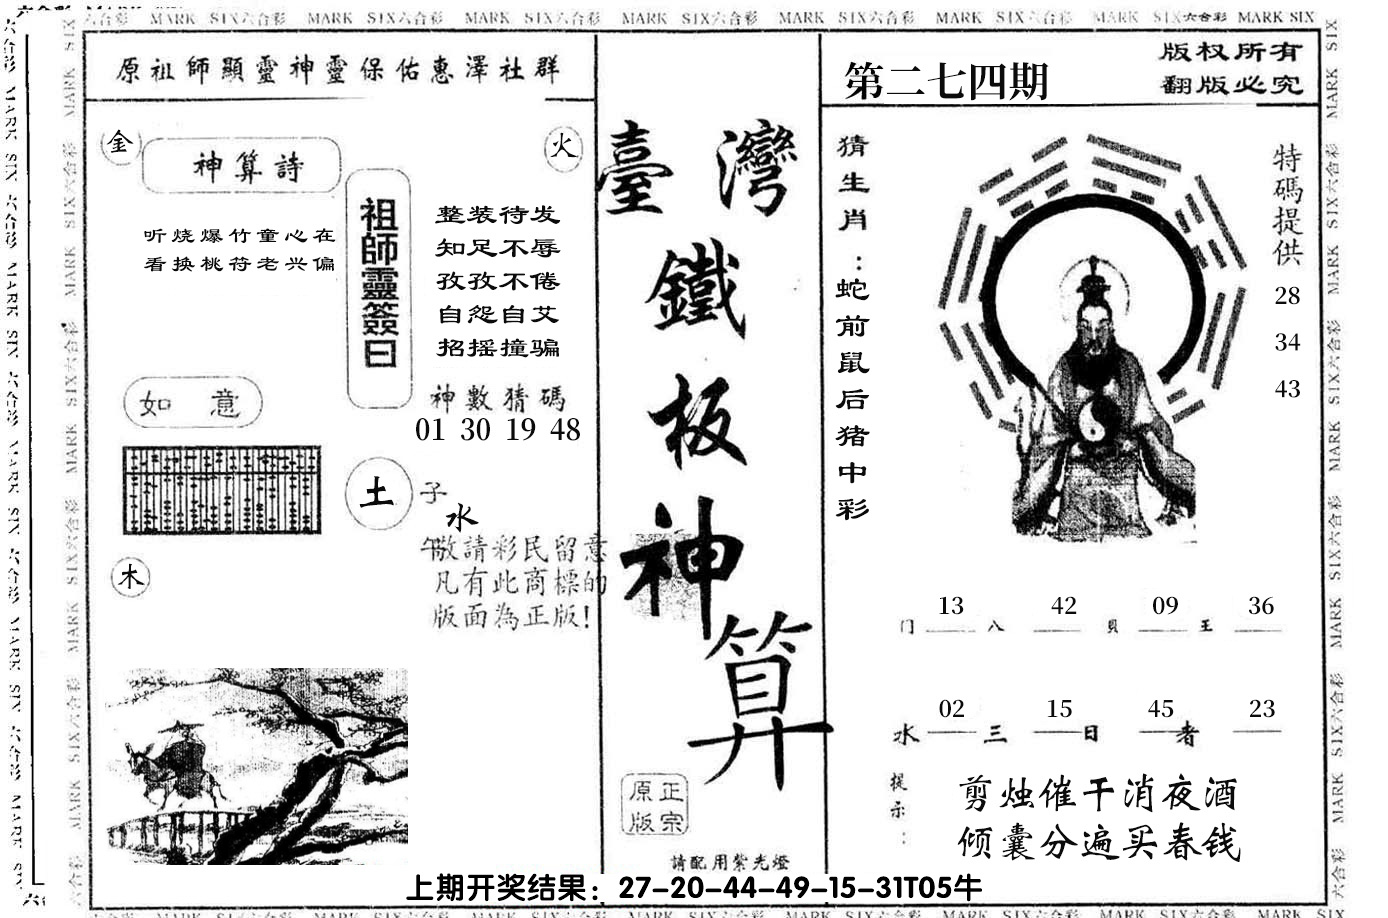 原祖師顯靈神靈保佑惠澤社群
金
神算詩
火
听烧爆竹童心在
看换桃符老兴偏
祖師靈簽曰
整装待发
知足不辱
孜孜不倦
自怨自艾
招摇撞骗
神數猜碼
01 30 19 48
如 意
土
子
水
午
敬請彩民留意
凡有此商標的
版面為正版!
木
臺灣
鐵
板
神
算
原正
版宗
請配用紫光燈
第二七四期
版权所有
翻版必究
猜生肖:蛇前鼠后猪中彩
特碼提供
28
34
43
13 42 09 36
门 八 貝 王
02 15 45 23
水 三 日 者
提示:
剪烛催干消夜酒
倾囊分遍买春钱
上期开奖结果：27-20-44-49-15-31T05牛
MARK SIX六合彩 MARK SIX六合彩 MARK SIX六合彩 MARK SIX六合彩 MARK SIX六合彩 MARK SIX六合彩 MARK SIX六合彩 MARK SIX